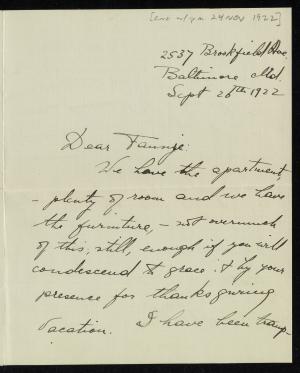 [env w/p.m. 24 NOV 1922]
2537 Brookfield Ave.
Baltimore Md.
Sept 26th 1922
Dear Fannie:
We have the apartment,
- plenty of room and we have
the furniture, - not overmuch
of this, still, enough if you will
condescend to grace it by your
presence for thanksgiving
vacation. I have been tramp-